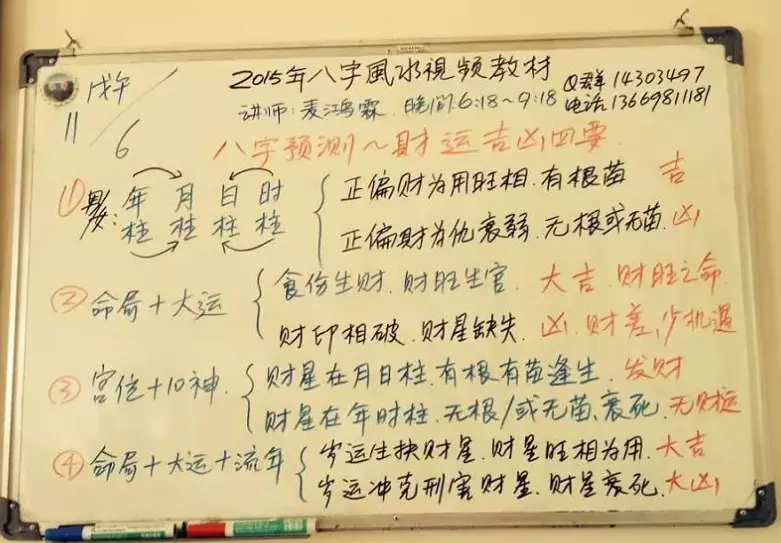 2015年八字風水視頻教材 Q群 14303497
讲师:麦鴻霖. 晚间:6:18~9:18 电话:13669811181
戊午
11/6
八字预测~财运吉凶四要
① 男女: 年柱 月柱 日柱 时柱
正偏财为用旺相.有根苗 吉
正偏财为仇衰弱.无根或无苗.凶
② 命局+大运
食伤生财.财旺生官. 大吉.财旺之命.
财印相破.财星缺失. 凶.财差,少机遇
③ 宫位+10神.
财星在月日柱.有根有苗逢生. 发财
财星在年时柱.无根/或无苗、衰死.无财运
④ 命局+大运+流年
岁运生扶财星.财星旺相为用.大吉
岁运冲克刑害财星.财星衰死.大凶